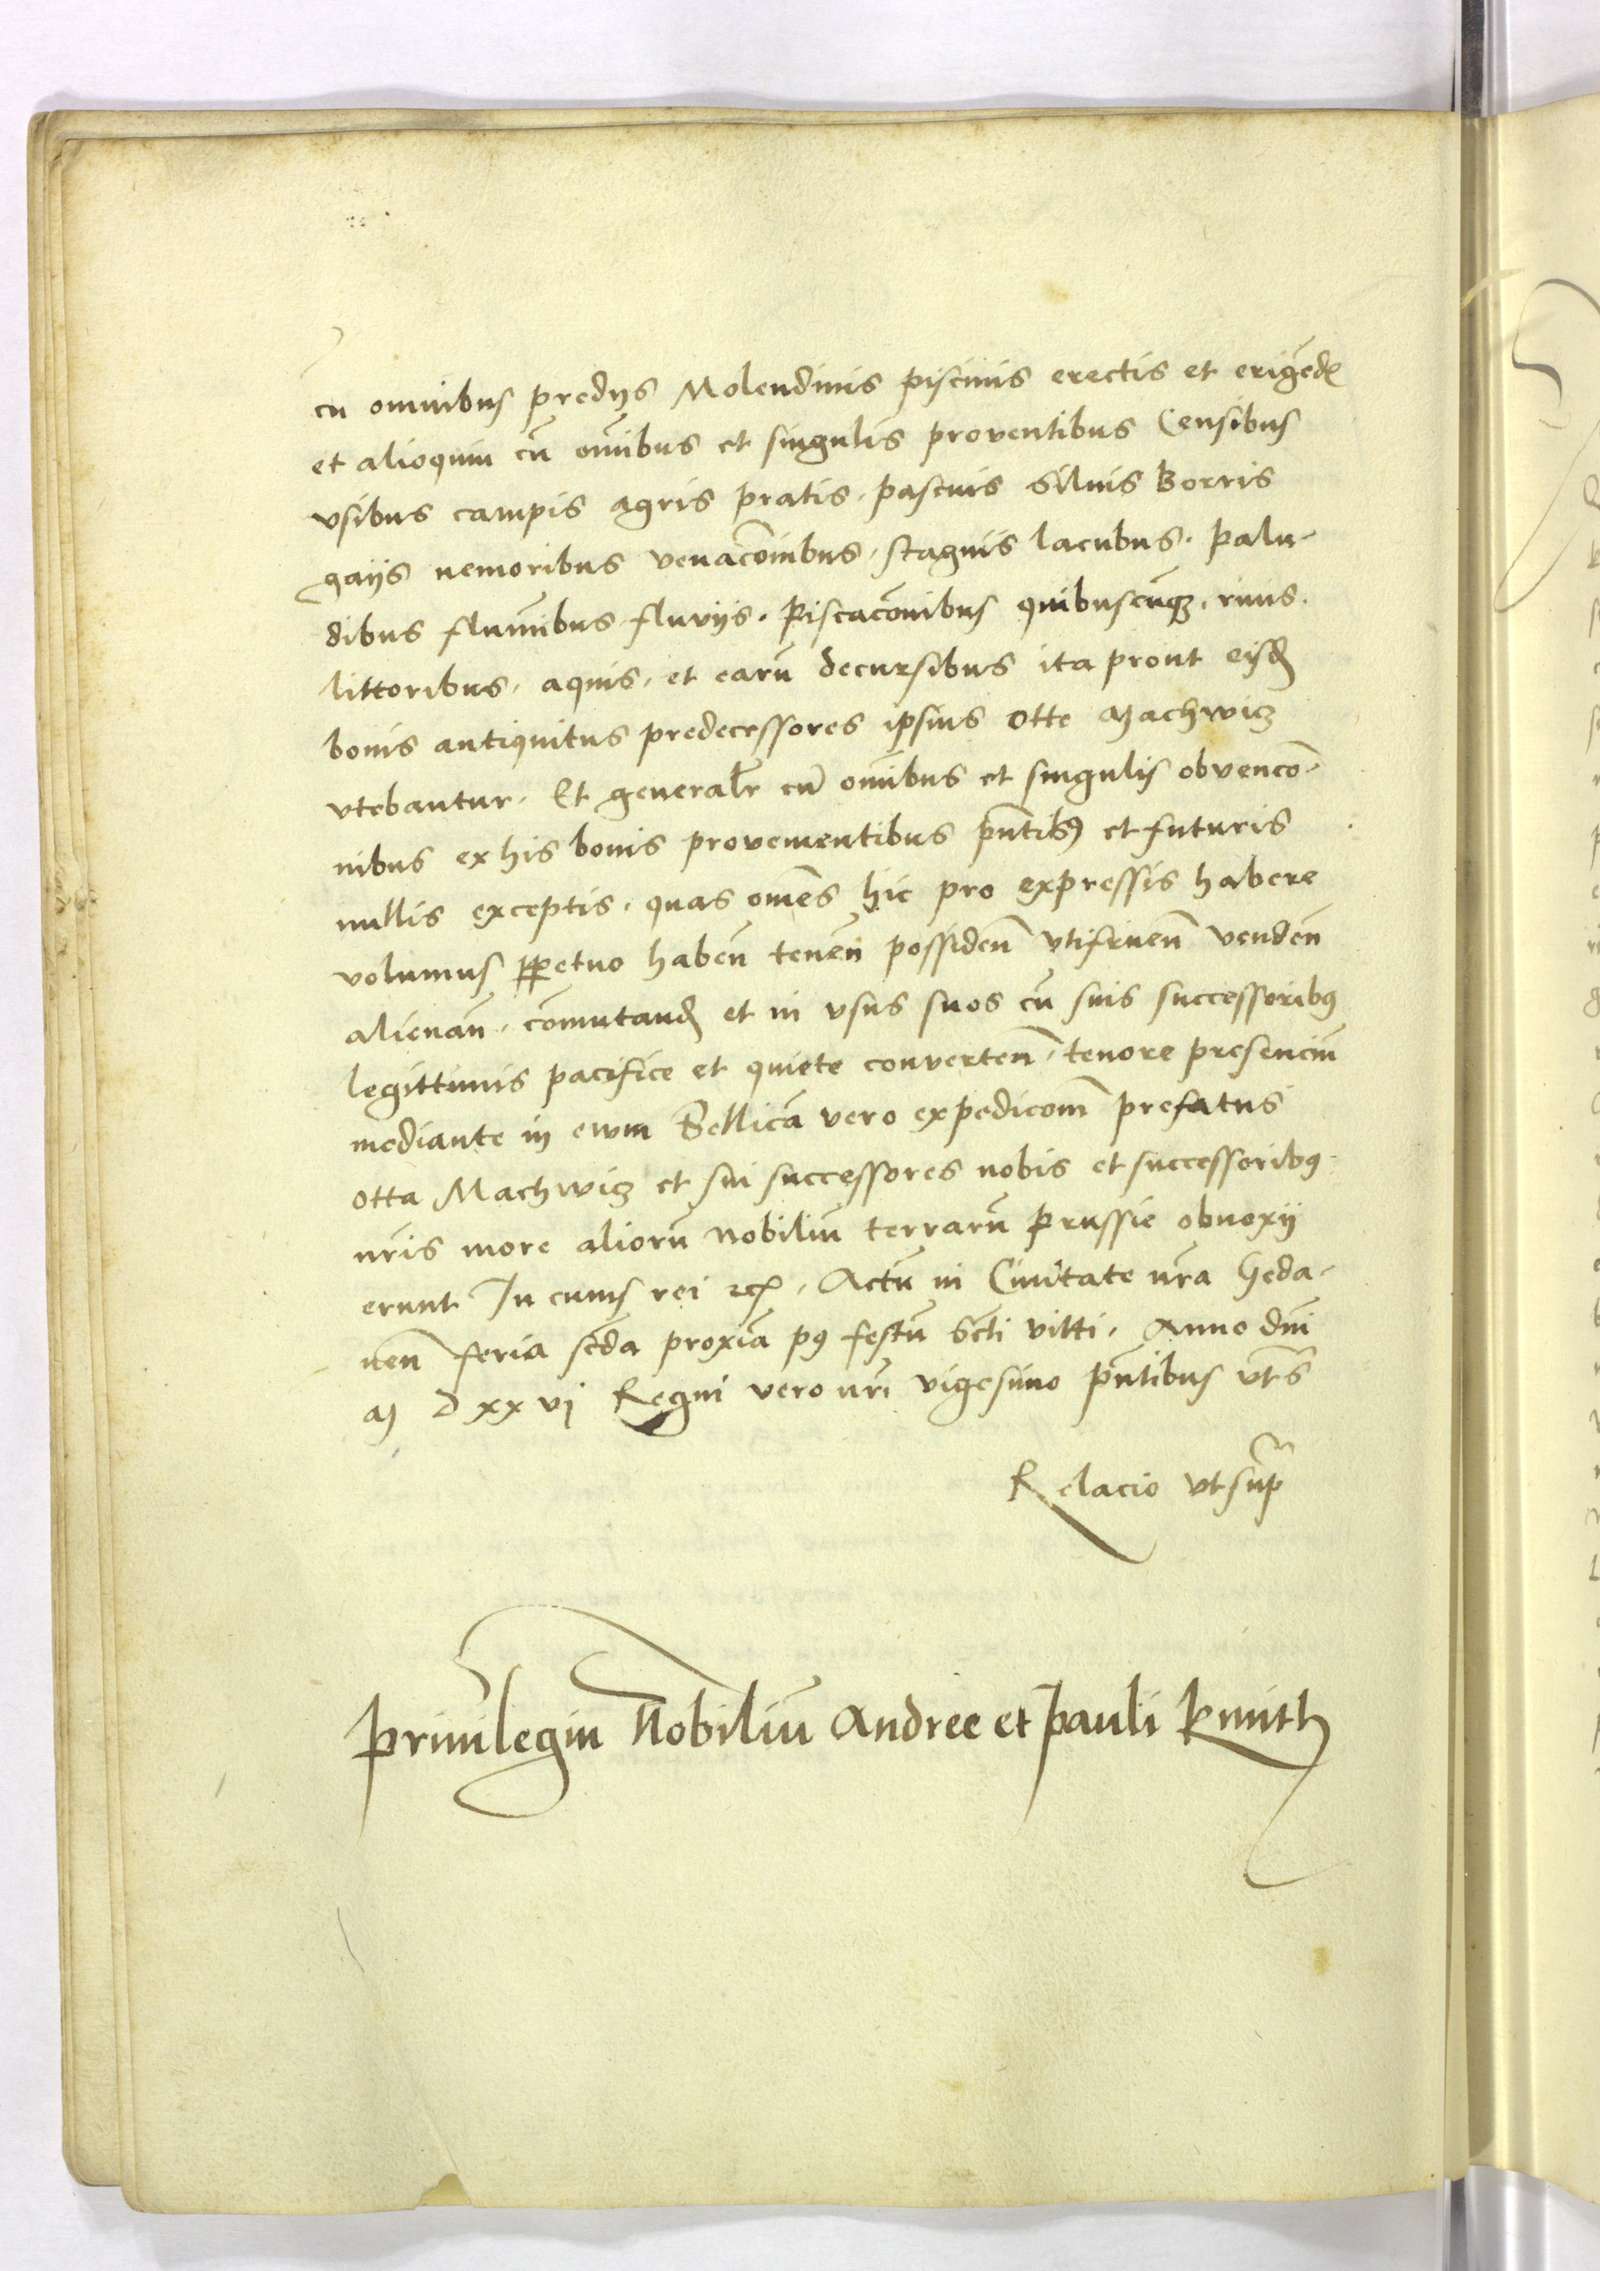 cu omnibus predijs Molendinis piscinis erectis et erigēd
et alioquin cū oīnibus et singulis proventibus Censibus
vsibus campis agris pratis, pascuis Siluis Borris
gaijs nemoribus venacōnibus, stagnis lacubus, palu-
dibus flumībus fluvijs, Piscacōnibus quibuscūqz, riuis.
littoribus, aquis, et earū decursibus ita prout eisd
bonis antiquitus predecessores ipsius Otte Machwicz
vtebantur, Et generalr cū oīnibus et singulis obvencō-
nibus ex his bonis provenientibus pñtibus et futuris
nullis exceptis, quas omēs hic pro expressis habere
volumus ppetuo habeñ teneñ possideñ vtifrueñ vendeñ
alienañ, cōmutand et in vsus suos cū suis successoribus
legittimis pacifice et quiete converteñ, tenore presenciū
mediante in ewm Bellicā vero expedicōm prefatus
Otta Machwicz et sui successores nobis et successoribus
nr̄is more aliorū nobiliū terrarū Prussie obnoxij
erunt In cuius rei etc, Actū in Ciuitate nr̄a Geda-
neñ feria scda proxīa pus festū Scti vitti, Anno dnī
M d xx vj Regni vero nr̄i vigesimo pñtibus vts
Relacio vt sup
Priuilegiu Nobiliū Andree et Pauli Kmith